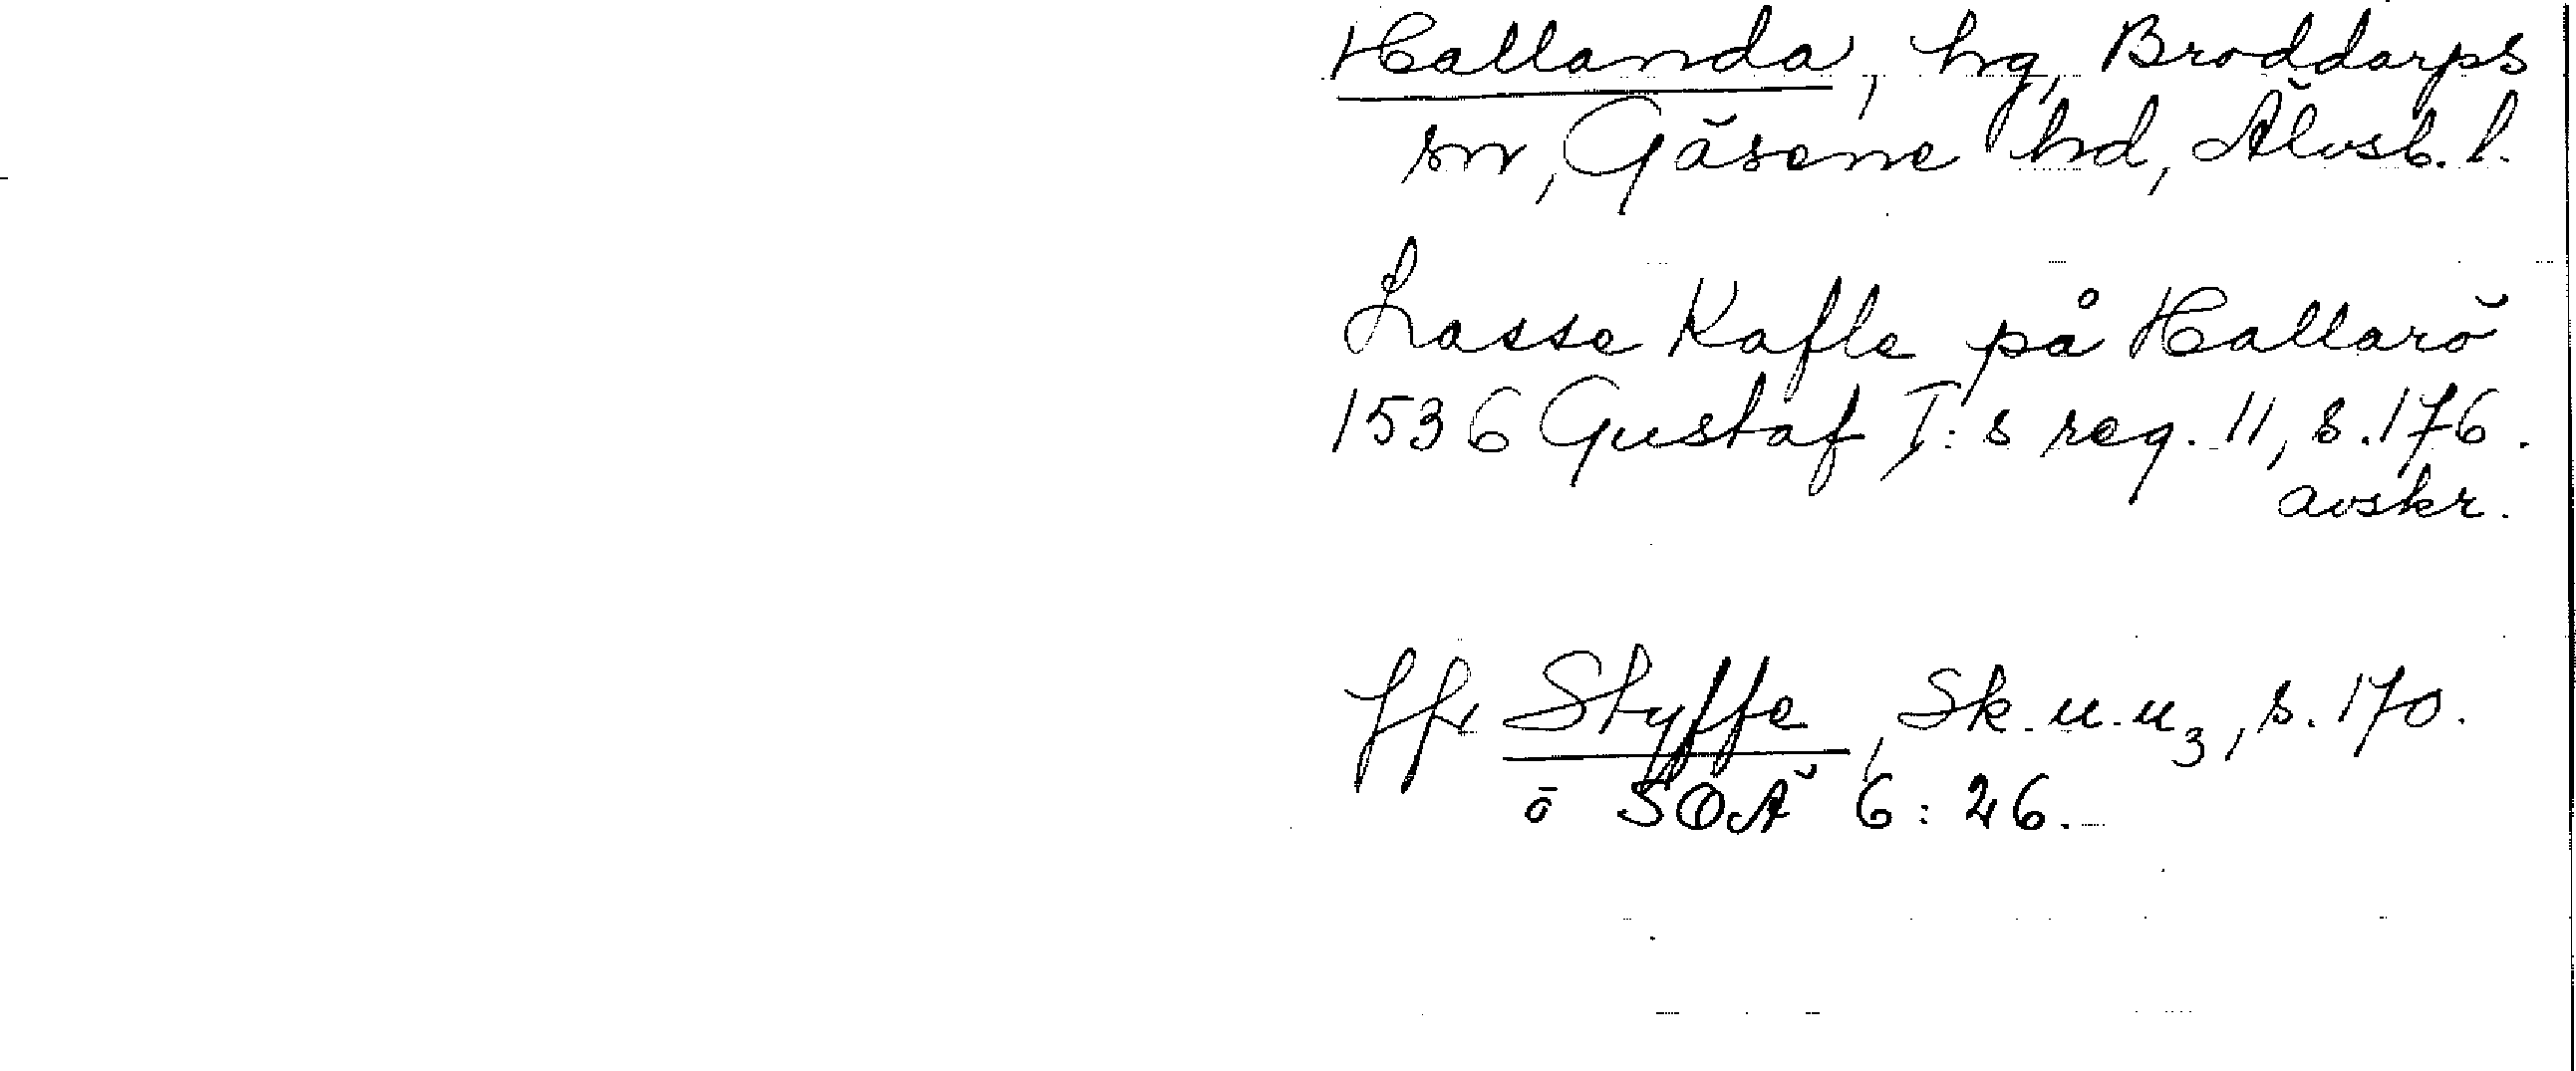 Hallanda, hg, Broddarps
sn, Gäsene hd, Älvsb. l.
Lasse Kafle på Hallarö
1536 Gustaf I:s reg. 11, s. 176.
avskr.
Jfr Styffe, Sk. u. u3, s. 170.
o SOÄ 6: 26.